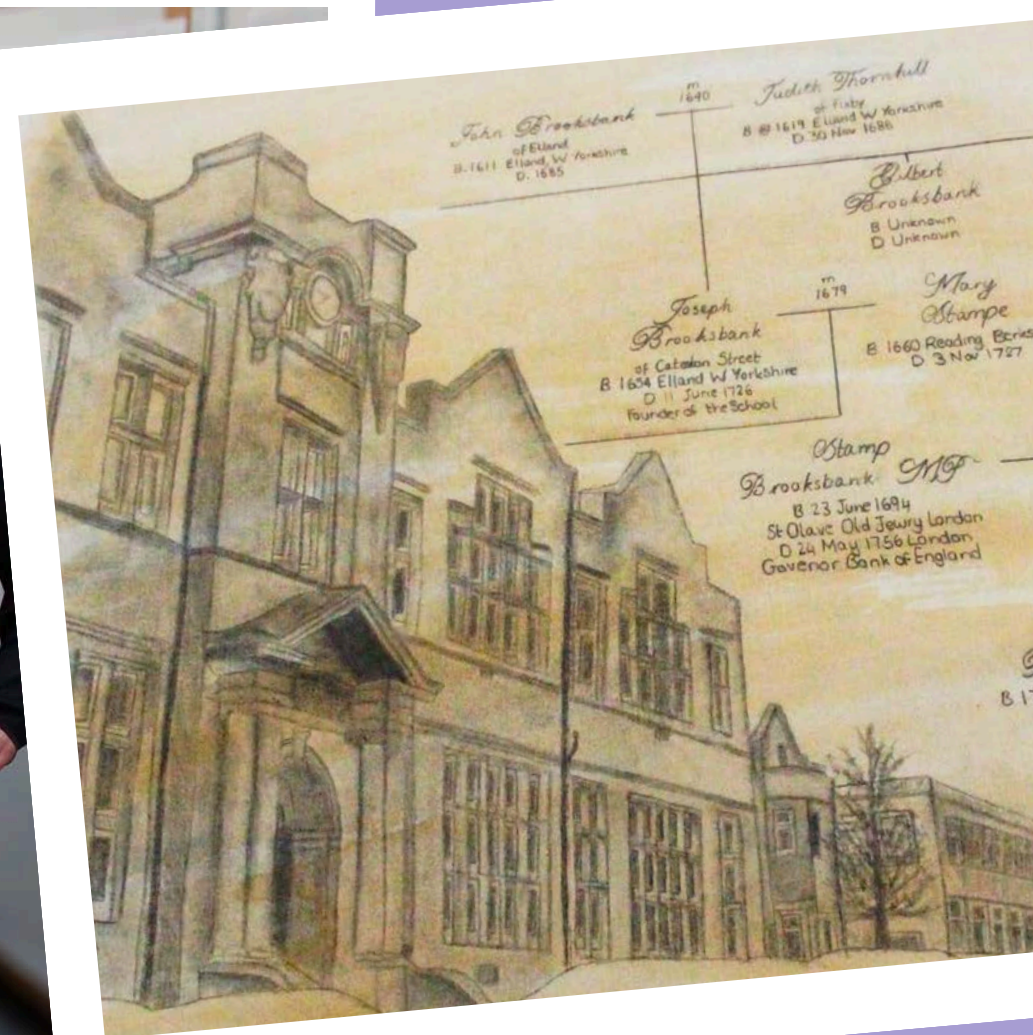 m
1640
John Brooksbank
of Elland
B. 1611 Elland, W Yorkshire
D. 1685
Judith Thornhill
of Fixby
B @ 1619 Elland W Yorkshire
D 30 Nov 1686
Gilbert
Brooksbank
B Unknown
D Unknown
Joseph
Brooksbank
of Cateaton Street
B 1654 Elland W Yorkshire
D 11 June 1726
Founder of the School
m
1679
Mary
Stampe
B 1660 Reading
D 3 Nov 1727
Stamp
Brooksbank MP
B 23 June 1694
St Olave Old Jewry London
D 24 May 1756 London
Govenor Bank of England
B 1